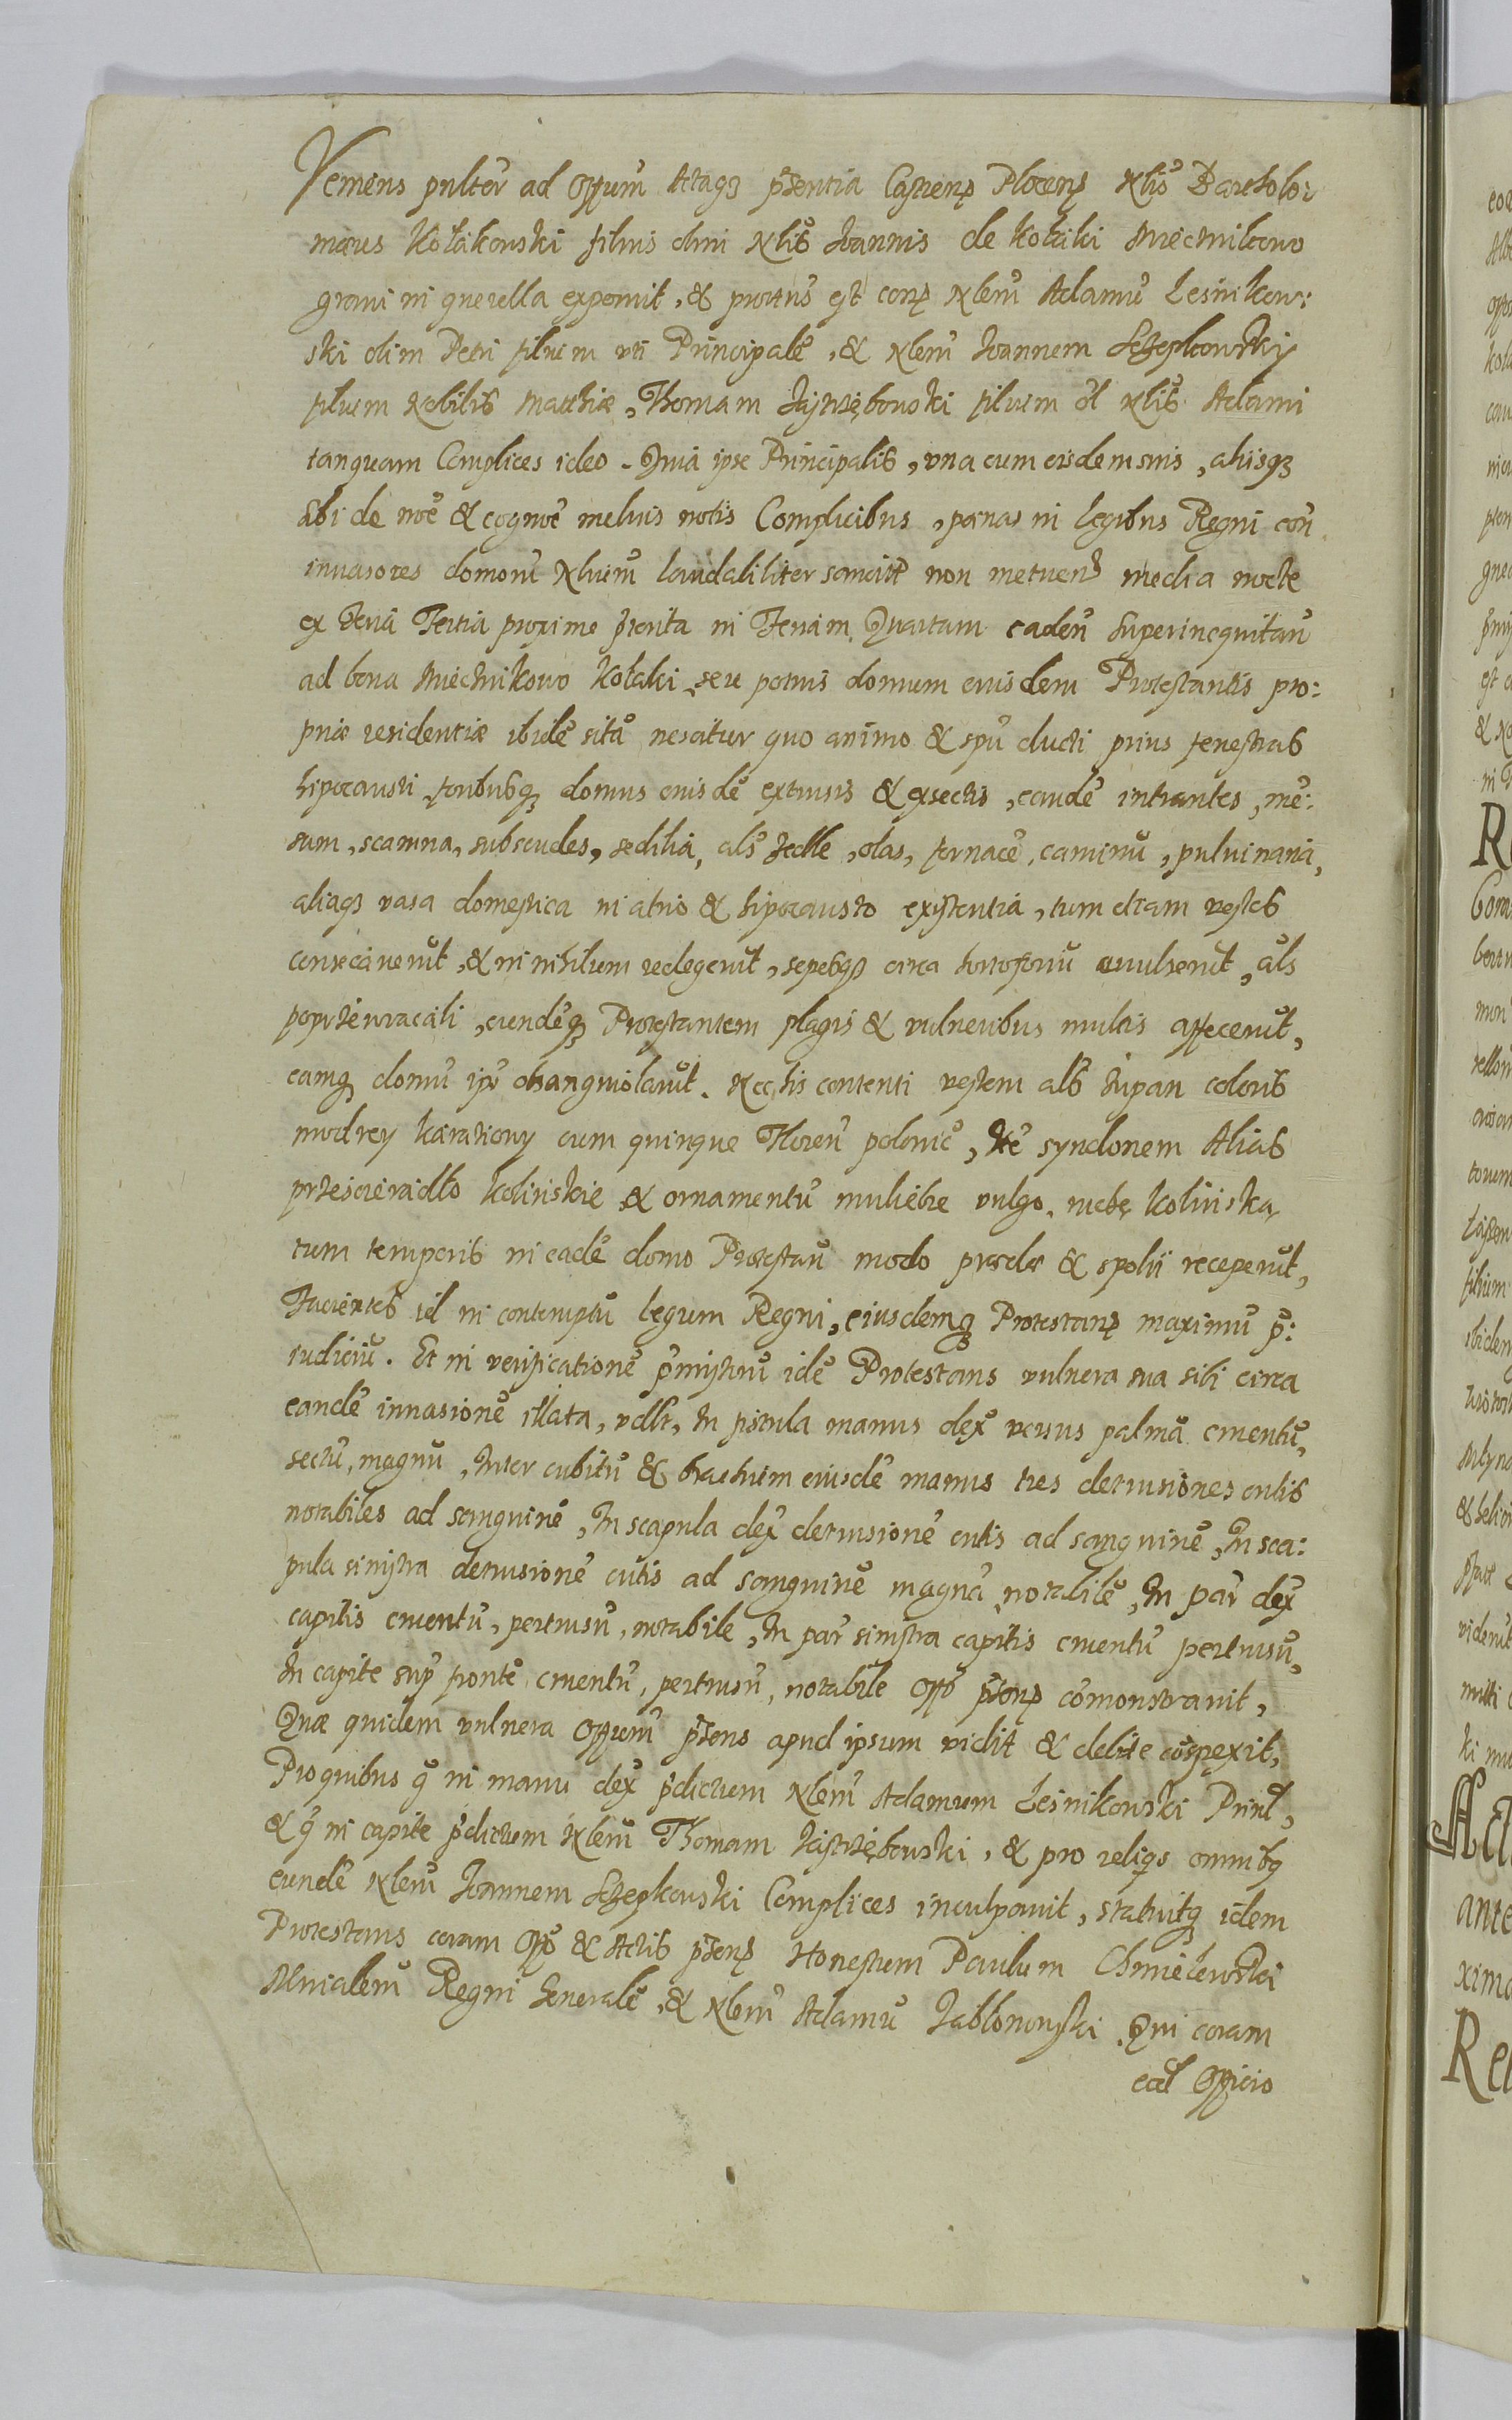 Veniens pnltēr ad Offum Actaqȝ pñtia Castrenꝭ Plocenꝭ Nlis Bartholo:
mæus Kołakowski filius olim Nlis Joannis de Kołaki Mięcznikowo
gravi in querella exposuit, & protus est conꝭ Nlem Adamū Leśnikow:
ski olim Petri filium uti Principalē, & Nlem Joannem Szczepkowsky
filium Nobilis Matthiæ, Thomam Jastrzębowski filium ol Nlis Adami
tanquam Complices ideo. Quia ipse Principalis, una cum eisdem suis, aliisqȝ
sibi de noē & cognoē melius notis Complicibus, pœnas in legibus Regni con
invasores domorū Nlium laudabiliter sancitas non metuens media nocte
ex Feria Tertia proxime præterita in Feriam Quartam eaden superinequitan
ad bona Mięcznikowo Kołaki, seu potius domum eiusdem Protestantis pro:
priæ residentiæ ibidē sitā nescitur quo animo & spū ducti prius fenestras
hipocausti foribusqȝ domus eiusdē extrusis & exsectis, eandē intrantes, mē:
sam, scamna, subscudes, sedilia, als zedle, olas, fornacē, caminū, pulvinaria,
aliaqȝ vasa domestica in atrio & hipocausto existentia, tum etiam vestes
consecaverūt, & in nihilum redegerūt, sepesqȝ circa horto forū avulserūt, als
poprzewracali, eundēqȝ Protestantem plagis & vulneribus multis affecerūt,
eamqȝ domū ipsi obsangviolarūt. Nec his contenti vestem als żupan coloris
modrey karaziowy cum quinque Floren polonic, Itē syndonem Alias
prześcieradło kolińskie & ornamentū muliebre vulgo, rąbek kolińską
tum temporis in eadē domo Protestan modo prædæ & spolii receperūt,
Facientes id in contemptū legum Regni, eiusdemqȝ Protestanꝭ maximū p̄:
iudiciū. Et in verificationē p̄missorū idē Protestans vulnera sua sibi circa
eandē invasionē illata, vdlt, In fistula manus dex versus palmā cruentū,
sectū, magnū, Inter cubitū & brachium eiusdē manus tres detrusiones cutis
notabiles ad sanguinē, In scapula dex detrusionē cutis ad sanguinē, In sca:
pula sinistra detrusionē cutis ad sanguinē magnā, notabilē, In par dex
capitis cruentū, pertusū, notabile, In par sinistra capitis cruentū pertusū,
In capite sup frontē cruentū, pertusū, notabile Offo pñtenꝭ cōmonstravit,
Quæ quidem vulnera Offium pñtens apud ipsum vidit & debite cōspexit,
Pro quibus q in manu dex p̄dictum Nlem Adamum Leśnikowski Prinl,
& q in capite p̄dictum Nlem Thomam Jastrzębowski, & pro reliqs omnibȝ
eundē Nlem Joannem Szczepkowski Complices inculpavit, statuitqȝ idem
Protestans coram Offo & Actis pñtenꝭ Honestum Paulum Chmielewski
Mnialem Regni Generalē, & Nlem Adamū Jabłonowski. Qui coram
eod Officio